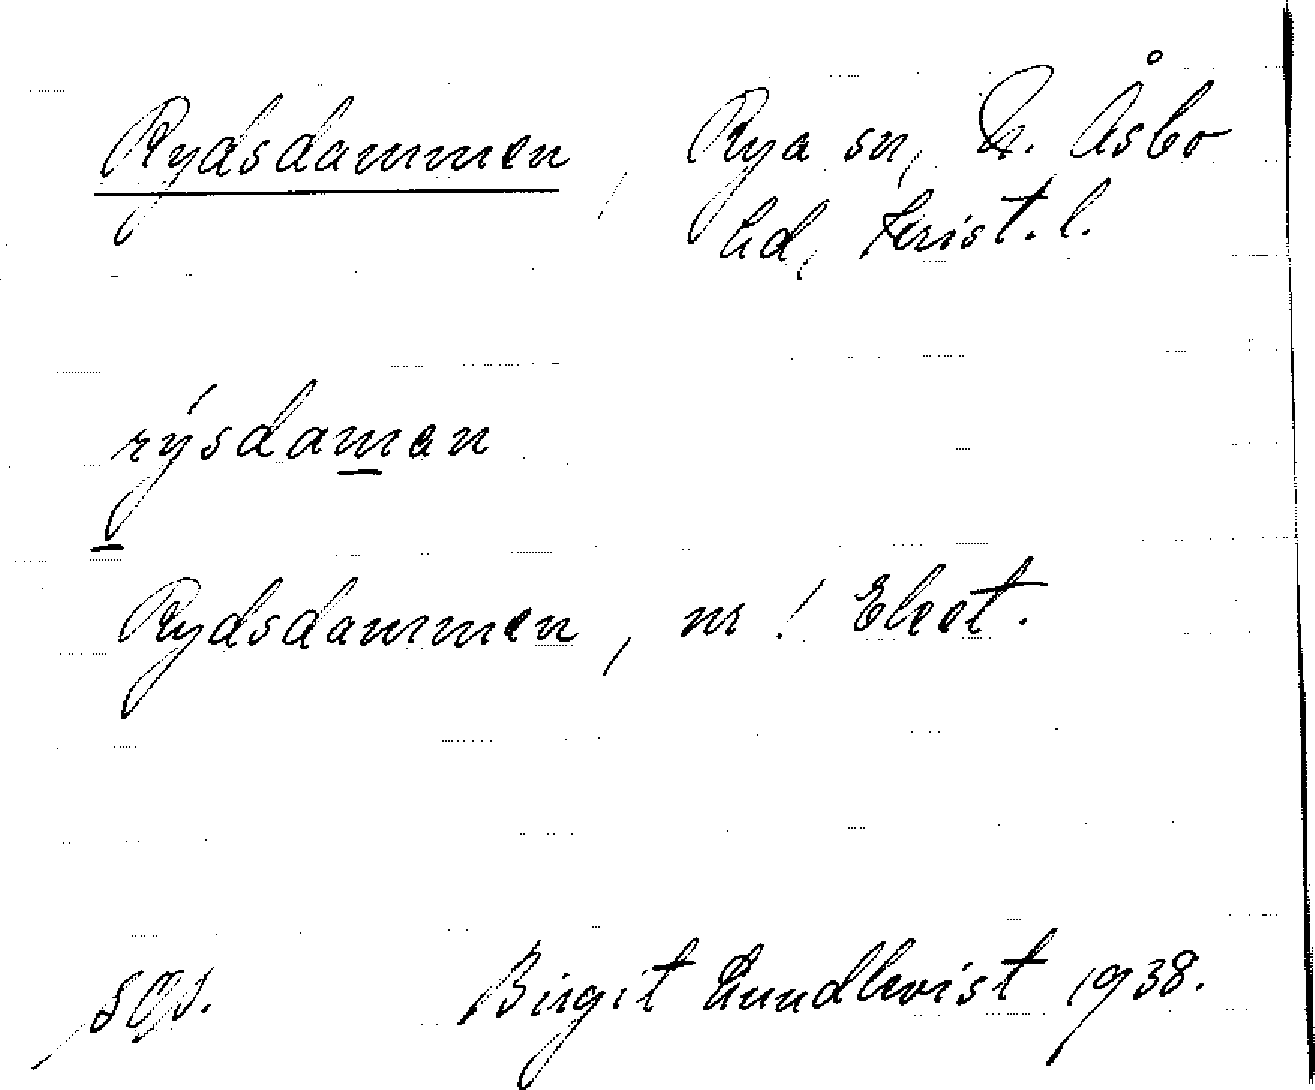 Rydsdammen, Rya sn, N. Åsbo
hd, Krist. l.
rýsdamen
Rydsdammen, nr ! Ekot.
sgs. Birgit Lundkvist 1938.